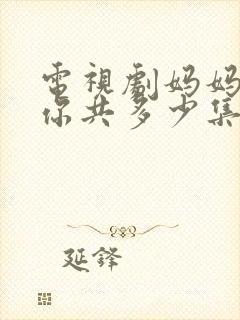 電視劇妈妈
你共多少集
延鋒